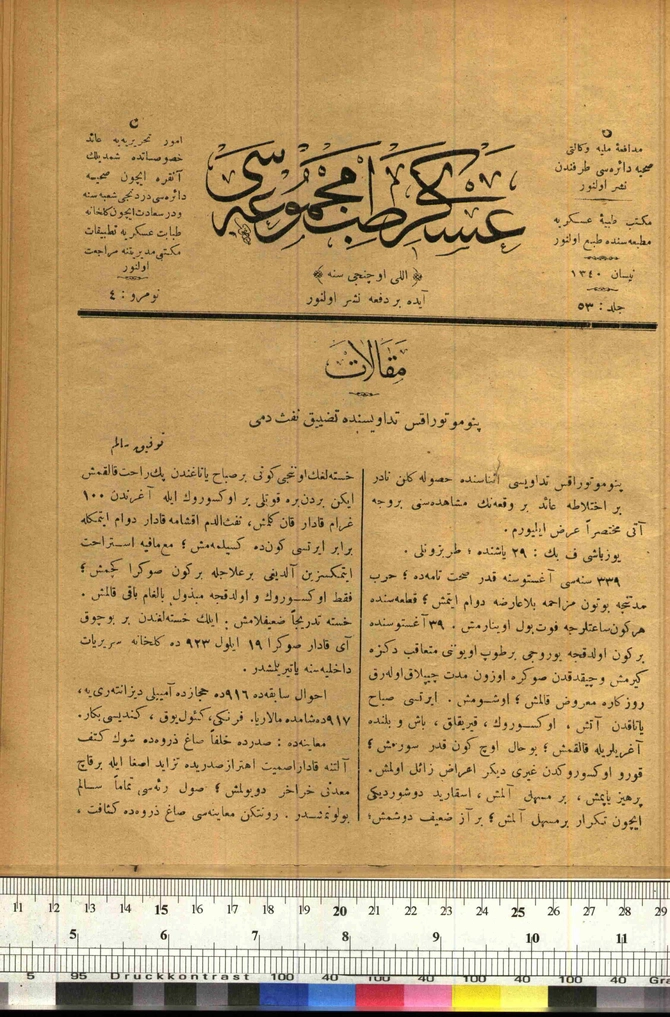 مدافعۀ ملیه وكالتی
صحیه دائره‌سی طرفندن
نشر اولنور
مكتب طبیۀ عسكریه
مطبعه‌سنده طبع اولنور
نیسان ١٣٤٠
جلد : ٥٣
عسكری طب مجموعه‌سی
﴿ اللی اوچنجی سنه ﴾
آیده بر دفعه نشر اولنور
امور تحریریه‌یه عائد
خصوصاتده شمدیلك
آنقره ایچون صحیه
دائره‌سی دردنجی شعبه‌سنه
و در سعادت ایچون كلخانه
طبابت عسكریه تطبیقات
مكتبی مدیریتنه مراجعت
اولنور
نومرو : ٤
مقالات
پنوموتوراقس تداویسنده تضییق نفث دمی
توفیق سالم
پنوموتوراقس تداویسی اثناسنده حصوله كلن نادر
بر اختلاطه عائد بر وقعه‌نك مشاهده‌سنی بروجه
آتی مختصراً عرض ایلیورم .
یوزباشی ف بك : ٢٩ یاشنده ، طربزونلی .
٣٣٩ سنه‌سی آغستوسنه قدر صحت تامه‌ده ؛ حرب
مدتجه بوتون مزاحمه بلاعارضه دوام ایتمش ؛ قطعه‌سنده
هركون ساعتلرجه فوت بول اوینارمش . ٣٩ آغستوسنده
بركون اولدقجه یوروجی برطوپ اویونی متعاقب دكزه
كیرمش وچیقدقدن صوكره اوزون مدت چیپلاق اوله‌رق
روزكاره معروض قالمش ؛ اوشومش . ایرتسی صباح
یاتاقدن آتش ، اوكسوروك ، قیریقلق ، باش و بلنده
آغریلریله قالقمش ؛ بوحال اوچ كون قدر سورمش ؛
قورو اوكسوروكدن غیری دیكر اعراض زائل اولمش .
پرهیز یاپمش ، بر مسهل آلمش ، اسقارید دوشوردیكی
ایچون تكرار برمسهل آلمش ؛ بر آز ضعیف دوشمش؛
خسته‌لغك اوننجی كونی برصباح یاتاغندن پك راحت قالقمش
ایكن بردن‌بره قوتلی بر اوكسوروك ایله آغزندن ١٠٠
غرام قادار قان كلمش ، نفث‌الدم اقشامه قادار دوام ایتمكله
برابر ایرتسی كون‌ده كسیلمه‌مش ؛ مع‌مافیه استراحت
ایتمكسزین آلدیغی برعلاجله بركون صوكرا كچمش ؛
فقط اوكسوروك و اولدقجه مبذول بالغام باقی قالمش .
خسته تدریجاً ضعیفلامش . ایلك خسته‌لغندن بر بوچوق
آی قادار صوكرا ١٩ ایلول ٩٢٣ ده كلخانه سریریات
داخلیه‌سنه یاتیریلمشدر .
احوال سابقه‌ده ٩١٦ده حجازده آمیبلی دیزانته‌ری‌یه ،
٩١٧ده شامده مالاریا. فرنكی، كئول یوق ، كندیسی بكار.
معاینه‌ده : صدرده خلفاً صاغ ذروه‌ده شوك كتف
آلتنه قادار اصمیت اهتزاز صدریده تزاید اصغا ایله برقاچ
معدنی خراخر دویولمش ؛ صول رئه‌سی تماماً سالم
بولونمشدر . رونتكن معاینه‌سی صاغ ذروه‌ده كثافت ،
11 12 13 14 15 16 17 18 19 20 21 22 23 24 25 26 27 28 29
5 6 7 8 9 10 11
5 95 Druckkontrast 100 40 100 40 100 40 100 40 Gra